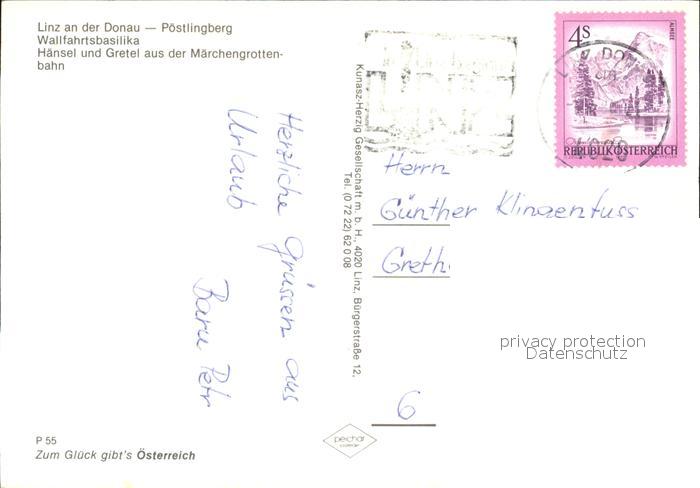 Linz an der Donau — Pöstlingberg
Wallfahrtsbasilika
Hänsel und Gretel aus der Märchengrotten-
bahn
Herzliche Grüssen aus
Urlaub
Kunasz-Herzig Gesellschaft m. b. H., 4020 Linz, Bürgerstraße 12,
Tel. (0 72 22) 62 0 08
4S
ALMSEE
REPUBLIK ÖSTERREICH
4020
Herrn
Günther Klingenfuss
privacy protection
Datenschutz
6
P 55
Zum Glück gibt's Österreich